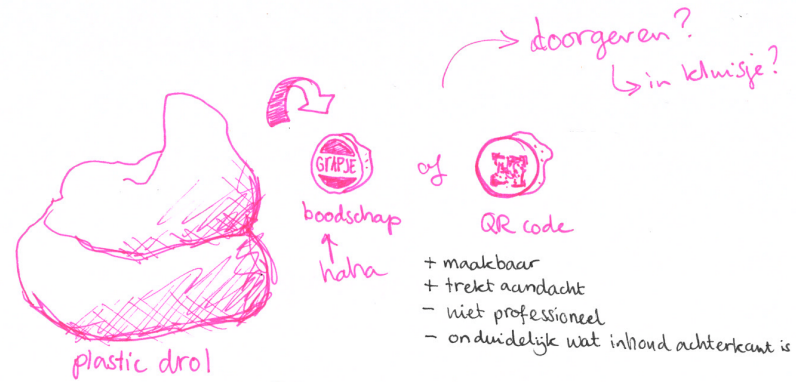 doorgeven?
in kluisje?
GRAPJE
of
boodschap
QR code
haha
+ maakbaar
+ trekt aandacht
- niet professioneel
- onduidelijk wat inhoud achterkant is
plastic drol